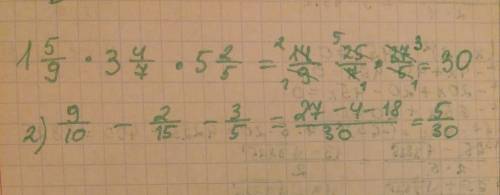 1 5/9 · 3 4/7 · 5 2/5 = 14/9 · 25/7 · 27/5 = 30
2) 9/10 - 2/15 - 3/5 = (27 - 4 - 18)/30 = 5/30